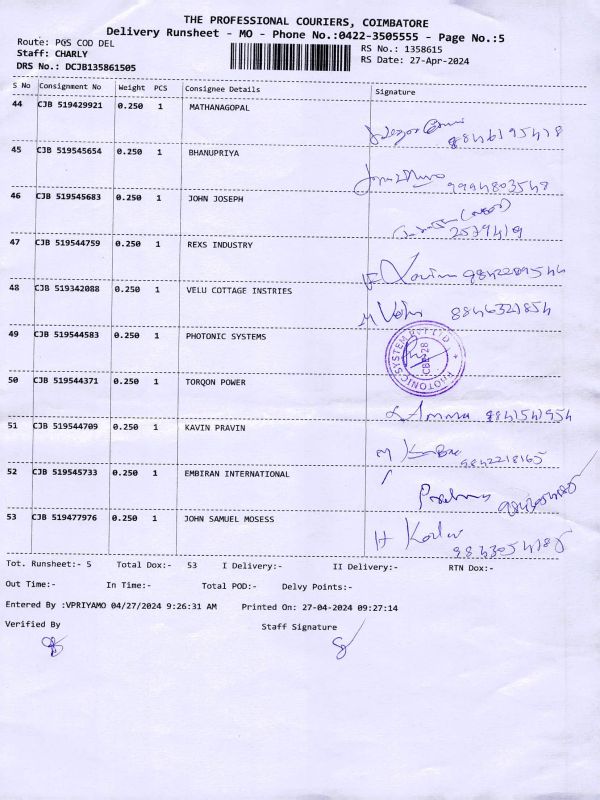 THE PROFESSIONAL COURIERS, COIMBATORE
Delivery Runsheet - MO - Phone No.:0422-3505555 - Page No.:5
Route: PGS COD DEL
RS No.: 1358615
Staff: CHARLY
RS Date: 27-Apr-2024
DRS No.: DCJB135861505
S No Consignment No Weight PCS Consignee Details Signature
44 CJB 519429921 0.250 1 MATHANAGOPAL
45 CJB 519545654 0.250 1 BHANUPRIYA
9994803548
46 CJB 519545683 0.250 1 JOHN JOSEPH
2579419
47 CJB 519544759 0.250 1 REXS INDUSTRY
48 CJB 519342088 0.250 1 VELU COTTAGE INSTRIES
M Velu 8846321854
49 CJB 519544583 0.250 1 PHOTONIC SYSTEMS
PHOTONIC SYSTEM PVT LTD
50 CJB 519544371 0.250 1 TORQON POWER
51 CJB 519544709 0.250 1 KAVIN PRAVIN
9842218165
52 CJB 519545733 0.250 1 EMBIRAN INTERNATIONAL
53 CJB 519477976 0.250 1 JOHN SAMUEL MOSESS
Tot. Runsheet:- 5 Total Dox:- 53 I Delivery:- II Delivery:- RTN Dox:-
Out Time:- In Time:- Total POD:- Delvy Points:-
Entered By :VPRIYAMO 04/27/2024 9:26:31 AM Printed On: 27-04-2024 09:27:14
Verified By Staff Signature